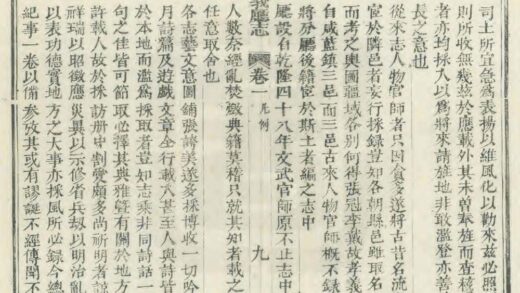 司土所宜急爲表揚以維風化以勸來茲必照
則所收無幾茲於應載外其未曾奉旌而查核
者亦均採入以爲將來請旌地非敢濫登亦善
長之意也
從來志人物官師者只因貪多遂將古昔名流
宦於隣邑者妄行採録豈知各朝縣邑雖取名
而考之輿圖疆域各別何得張冠李戴故孝義
自咸藍鎮三邑而三邑古來人物官師概不録
將分廳後籍宦於斯土者編之志中
廳設自乾隆四十八年文武官師原不止志中
義廳志 卷一 凡例 九
人數奈經亂焚燬典籍莫稽只就其知者載之
任意取舍也
各志藝文意圖鋪張諸美遂多採博收一切吟
月詩篇及遊戲文章全行載入甚至人與詩皆
於本地而濫爲採取者豈知志乘非同詩話一
句之佳皆可節取必擇其典雅暨有關於地方
許載入故於採訪册中割愛頗多尚祈明者諒
祥瑞以昭徵應災異以示修省兵刼以明治亂
以表功德實地方之大事亦採風所必録今總
紀事一卷以備參攷其或有謬誕不經傳聞不